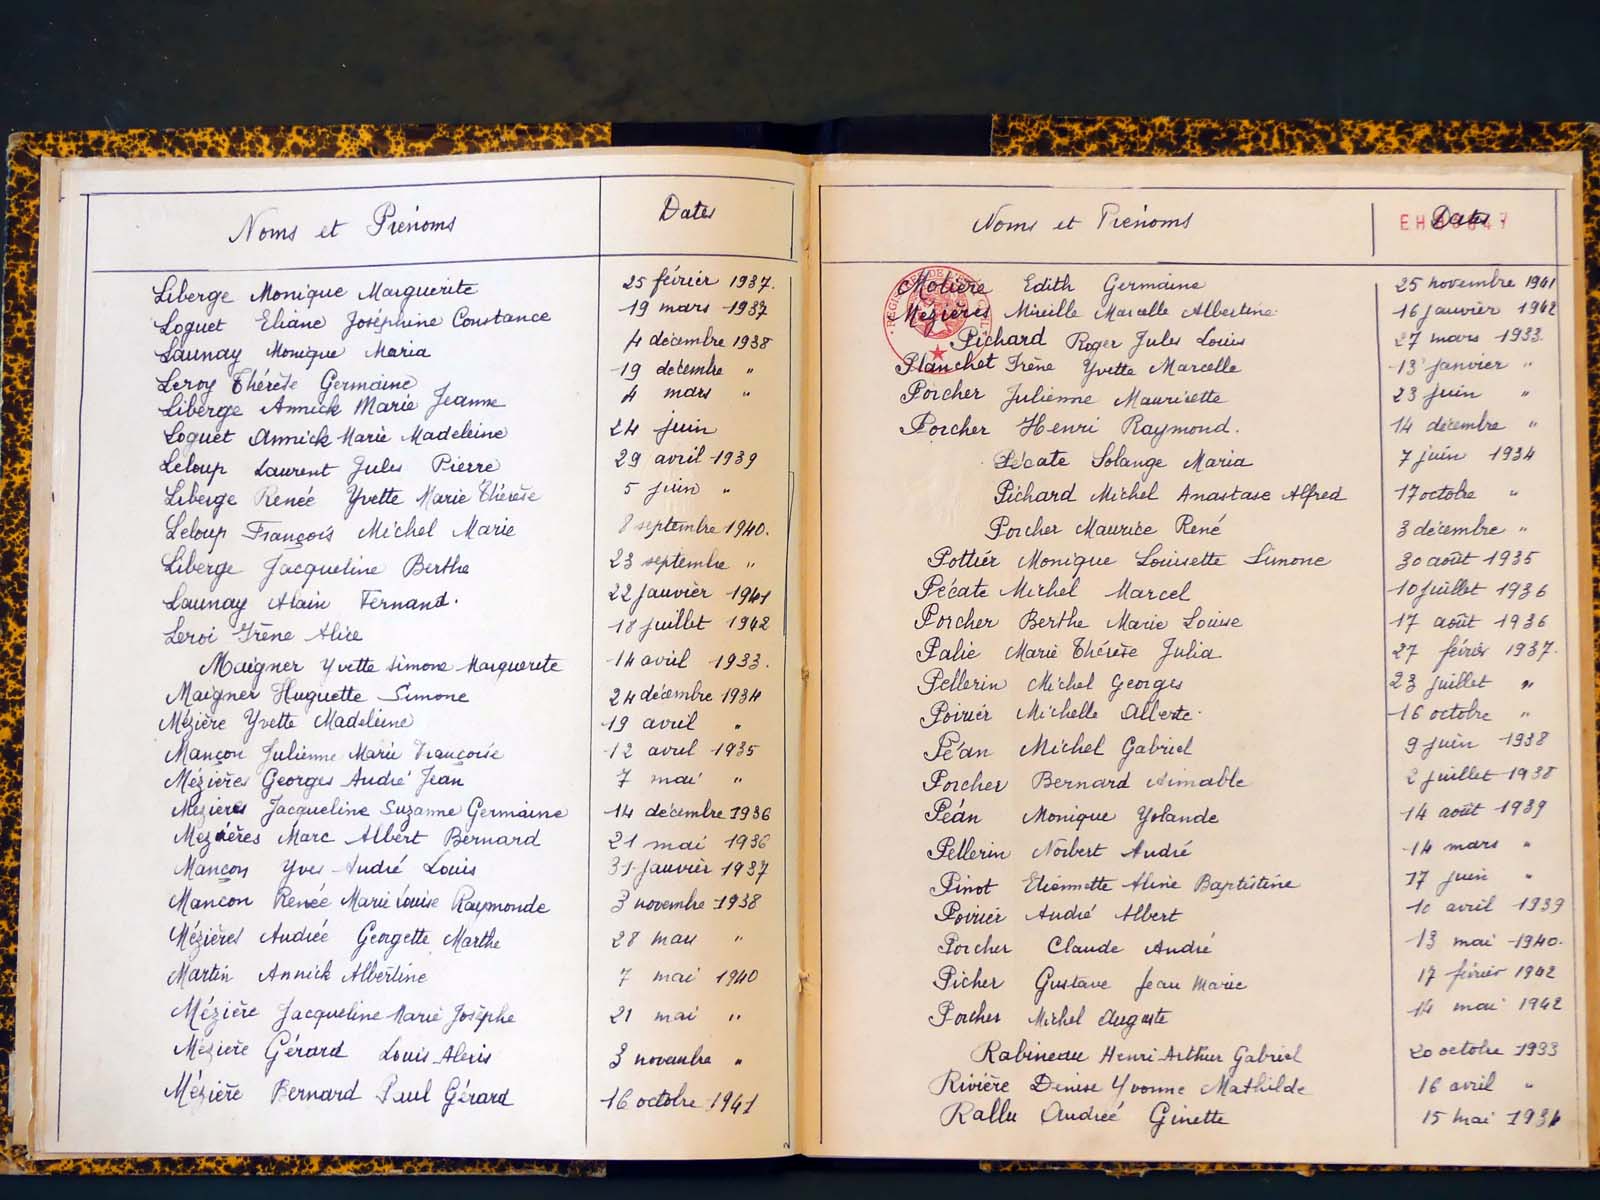 Noms et Prénoms Dates
Liberge Monique Marguerite 25 février 1937.
Loguet Eliane Joséphine Constance 19 mars 1937
Launay Monique Maria 4 décembre 1938
Leroy Thérèse Germaine 19 décembre "
Liberge Annick Marie Jeanne 4 mars "
Loguet Annick Marie Madeleine 24 juin
Leloup Laurent Jules Pierre 29 avril 1939
Liberge Renée Yvette Marie Thérèse 5 juin "
Leloup François Michel Marie 8 septembre 1940.
Liberge Jacqueline Berthe 23 septembre "
Launay Alain Fernand. 22 janvier 1941
Leroi Irène Alice 18 juillet 1942
Maigner Yvette Simone Marguerite 14 avril 1933.
Maigner Huguette Simone 24 décembre 1934
Mézière Yvette Madeleine 19 avril "
Mançon Julienne Marie Françoise 12 avril 1935
Mézières Georges André Jean 7 mai "
Mezieres Jacqueline Suzanne Germaine 14 décembre 1936
Mézières Marc Albert Bernard 21 mai 1936
Mançon Yves André Louis 31 janvier 1937
Mancon Renée Marie Louise Raymonde 3 novembre 1938
Mézières Andrée Georgette Marthe 28 mars "
Martin Annick Albertine 7 mai 1940
Mézière Jacqueline Marie Josèphe 21 mai "
Mézière Gérard Louis Alexis 3 novembre "
Mézière Bernard Paul Gérard 16 octobre 1941
Noms et Prénoms Dates.
Molière Edith Germaine 25 novembre 1941
Mezières Mireille Marcelle Albertine 16 janvier 1942
Pichard Roger Jules Louis 27 mars 1933.
Planchet Irène Yvette Marcelle 13 janvier "
Porcher Julienne Mauricette 23 juin "
Porcher Henri Raymond. 14 décembre "
Pécate Solange Maria 7 juin 1934
Pichard Michel Anastase Alfred 17 octobre "
Porcher Maurice René 3 décembre "
Pottier Monique Louisette Simone 30 août 1935
Pécate Michel Marcel 10 juillet 1936
Porcher Berthe Marie Louise 17 août 1936
Palie Marie Thérèse Julia 27 février 1937.
Pellerin Michel Georges 23 juillet "
Poirier Michelle Alberte. 16 octobre "
Péan Michel Gabriel 9 juin 1938
Porcher Bernard Aimable 2 juillet 1938
Péan Monique Yolande 14 août 1939
Pellerin Norbert André 14 mars "
Pinot Etiennette Aline Baptistine 17 juin "
Poirier André Albert 10 avril 1939
Porcher Claude André 13 mai 1940.
Picher Gustave Jean Marie 17 février 1942
Porcher Michel Auguste 14 mai 1942
Rabineau Henri Arthur Gabriel 20 octobre 1933
Rivière Denise Yvonne Mathilde 16 avril "
Rallu Andrée Ginette 15 mai 1934